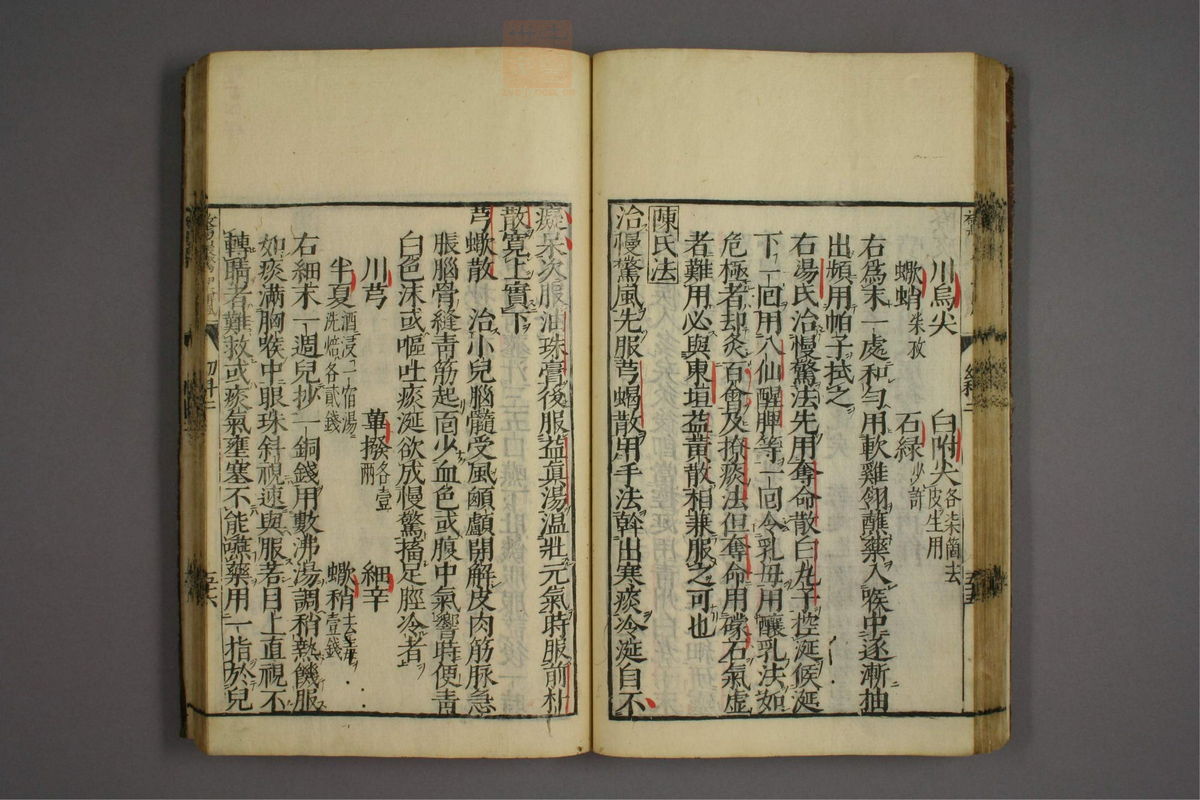 川烏尖 白附尖各柒箇去皮生用
蠍蛸柒孜 石緑少許
右爲末一處和勻用軟雞翎蘸藥入喉中逐漸抽
出頻用帕子拭之
右湯氏治慢驚法先用奪命散白丸子控涎候涎
下一回用八仙醒脾等一回令乳母用釀乳法如
危極者却灸百會及撩痰法但奪命用礞石氣虛
者難用必與東垣益黃散相兼服之可也
陳氏法
治慢驚風先服芎蝎散用手法斡出寒痰冷涎自不
癡呆次服油珠膏後服益眞湯温壯元氣時服前朴
散寬上實下
芎蠍散 治小兒腦髓受風顖顱開解皮肉筋脉急
脹腦骨縫靑筋起面少血色或腹中氣響時便靑
白色沫或嘔吐痰涎欲成慢驚搐足脛冷者
川芎 蓽撥各壹兩 細辛
半夏酒浸一宿湯洗焙各貳錢 蠍稍去毒壹錢
右細末一週兒抄一銅錢用數沸湯調稍熱饑服
如痰满胸喉中眼珠斜視速與服若目上直視不
轉睛者難救或痰氣壅塞不能嚥藥用一指於兒